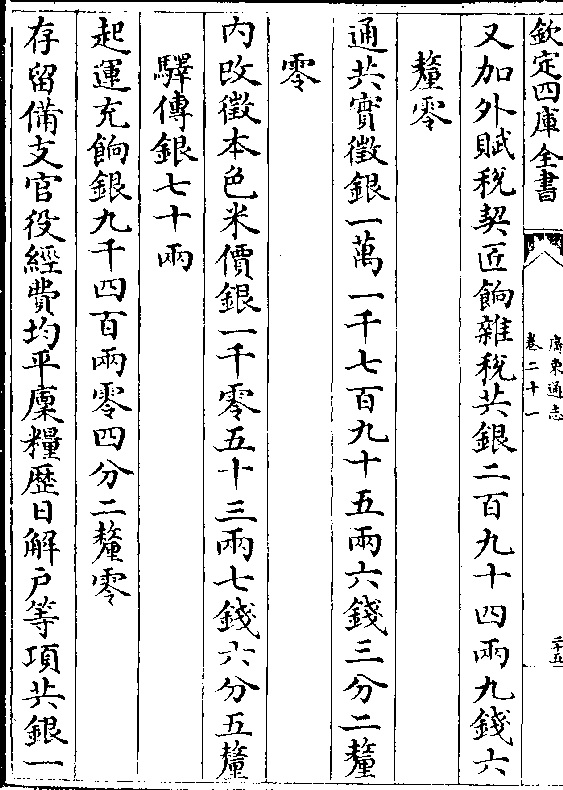 欽定四庫全書
廣東通志
卷二十一
二十五
又加外賦稅契匠餉雜稅共銀二百九十四兩九錢六
釐零
通共實徵銀一萬一千七百九十五兩六錢三分二釐
零
内改徵本色米價銀一千零五十三兩七錢六分五釐
驛傳銀七十兩
起運充餉銀九千四百兩零四分二釐零
存留備支官役經費均平廩糧歴日解户等項共銀一